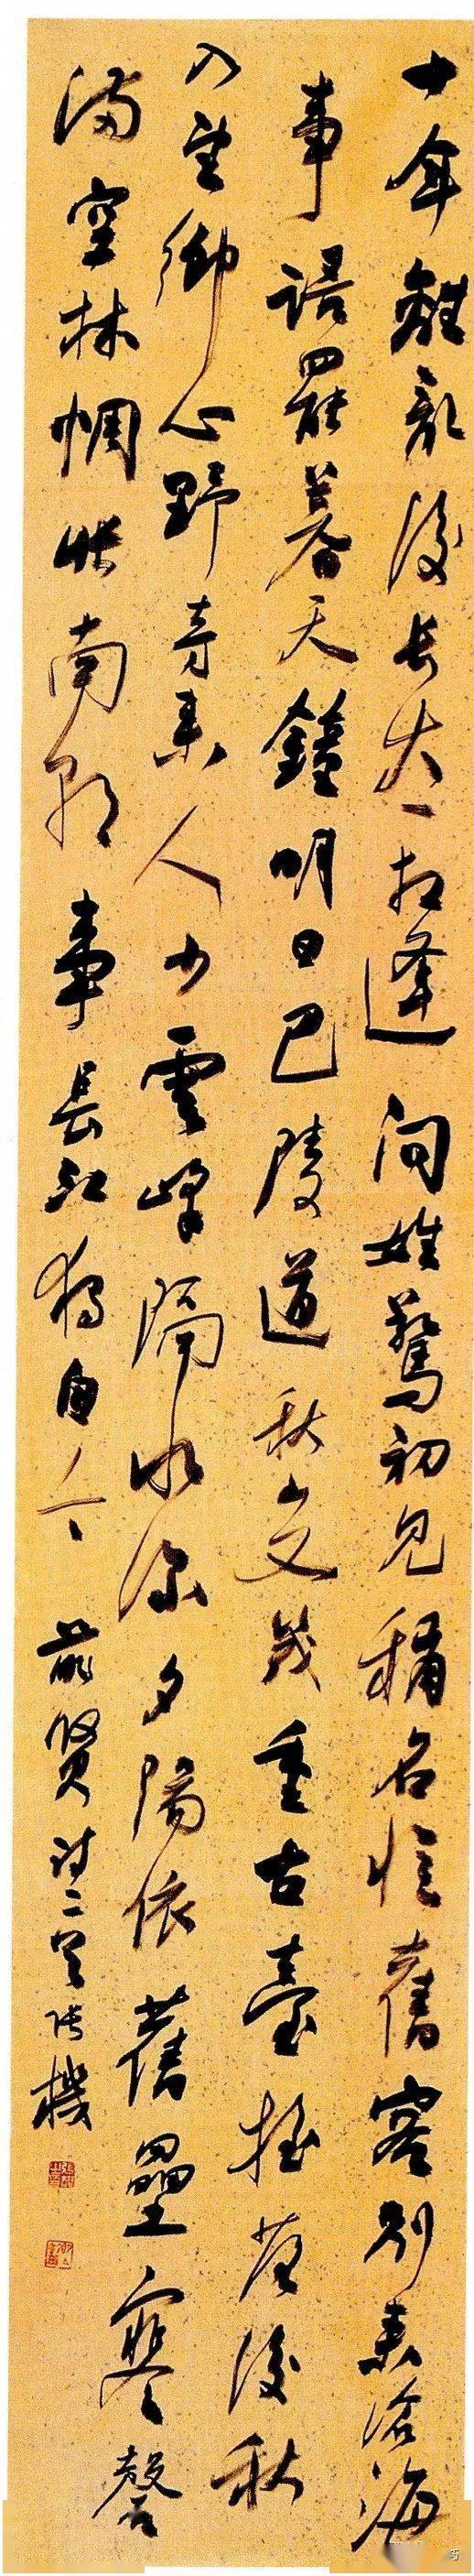 十年離亂後長大一相逢問姓驚初見稱名憶舊容別來滄海
事語罷暮天鐘明日巴陵道秋山又幾重古臺搖落後秋
入望鄉心野寺來人少雲峰隔水深夕陽依舊壘寒磬
滿空林惆悵南朝事長江獨自今 前賢詩二首 機